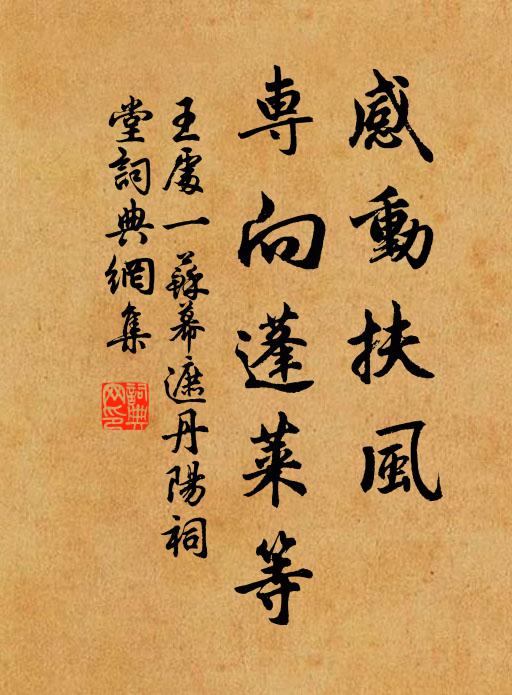 感動扶風
専向蓬萊等
王處一蘇幕遮丹陽祠
堂詞典網集
詞典
网印